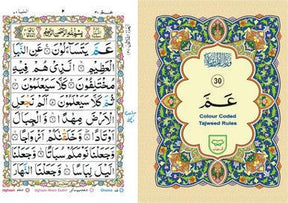 عَمَّ يَتَسَآءَلُونَ عَنِ النَّبَاِ
الْعَظِيْمِ الَّذِيْ هُمْ فِيْهِ
مُخْتَلِفُوْنَ كَلَّا سَيَعْلَمُوْنَ
ثُمَّ كَلَّا سَيَعْلَمُوْنَ اَلَمْ نَجْعَلِ
الْاَرْضَ مِهٰدًا وَّالْجِبَالَ
اَوْتَادًا وَّخَلَقْنٰكُمْ اَزْوَاجًا
وَّجَعَلْنَا نَوْمَكُمْ سُبَاتًا وَّجَعَلْنَا
الَّيْلَ لِبَاسًا وَّجَعَلْنَا النَّهَارَ
30
عَمَّ
Colour Coded
Tajweed Rules